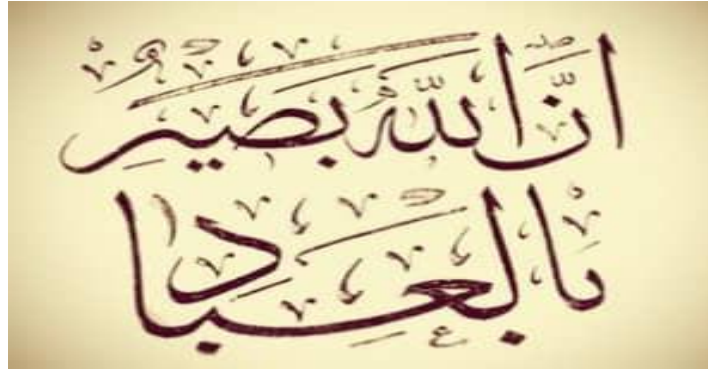 انّ الله بصير
بالعباد